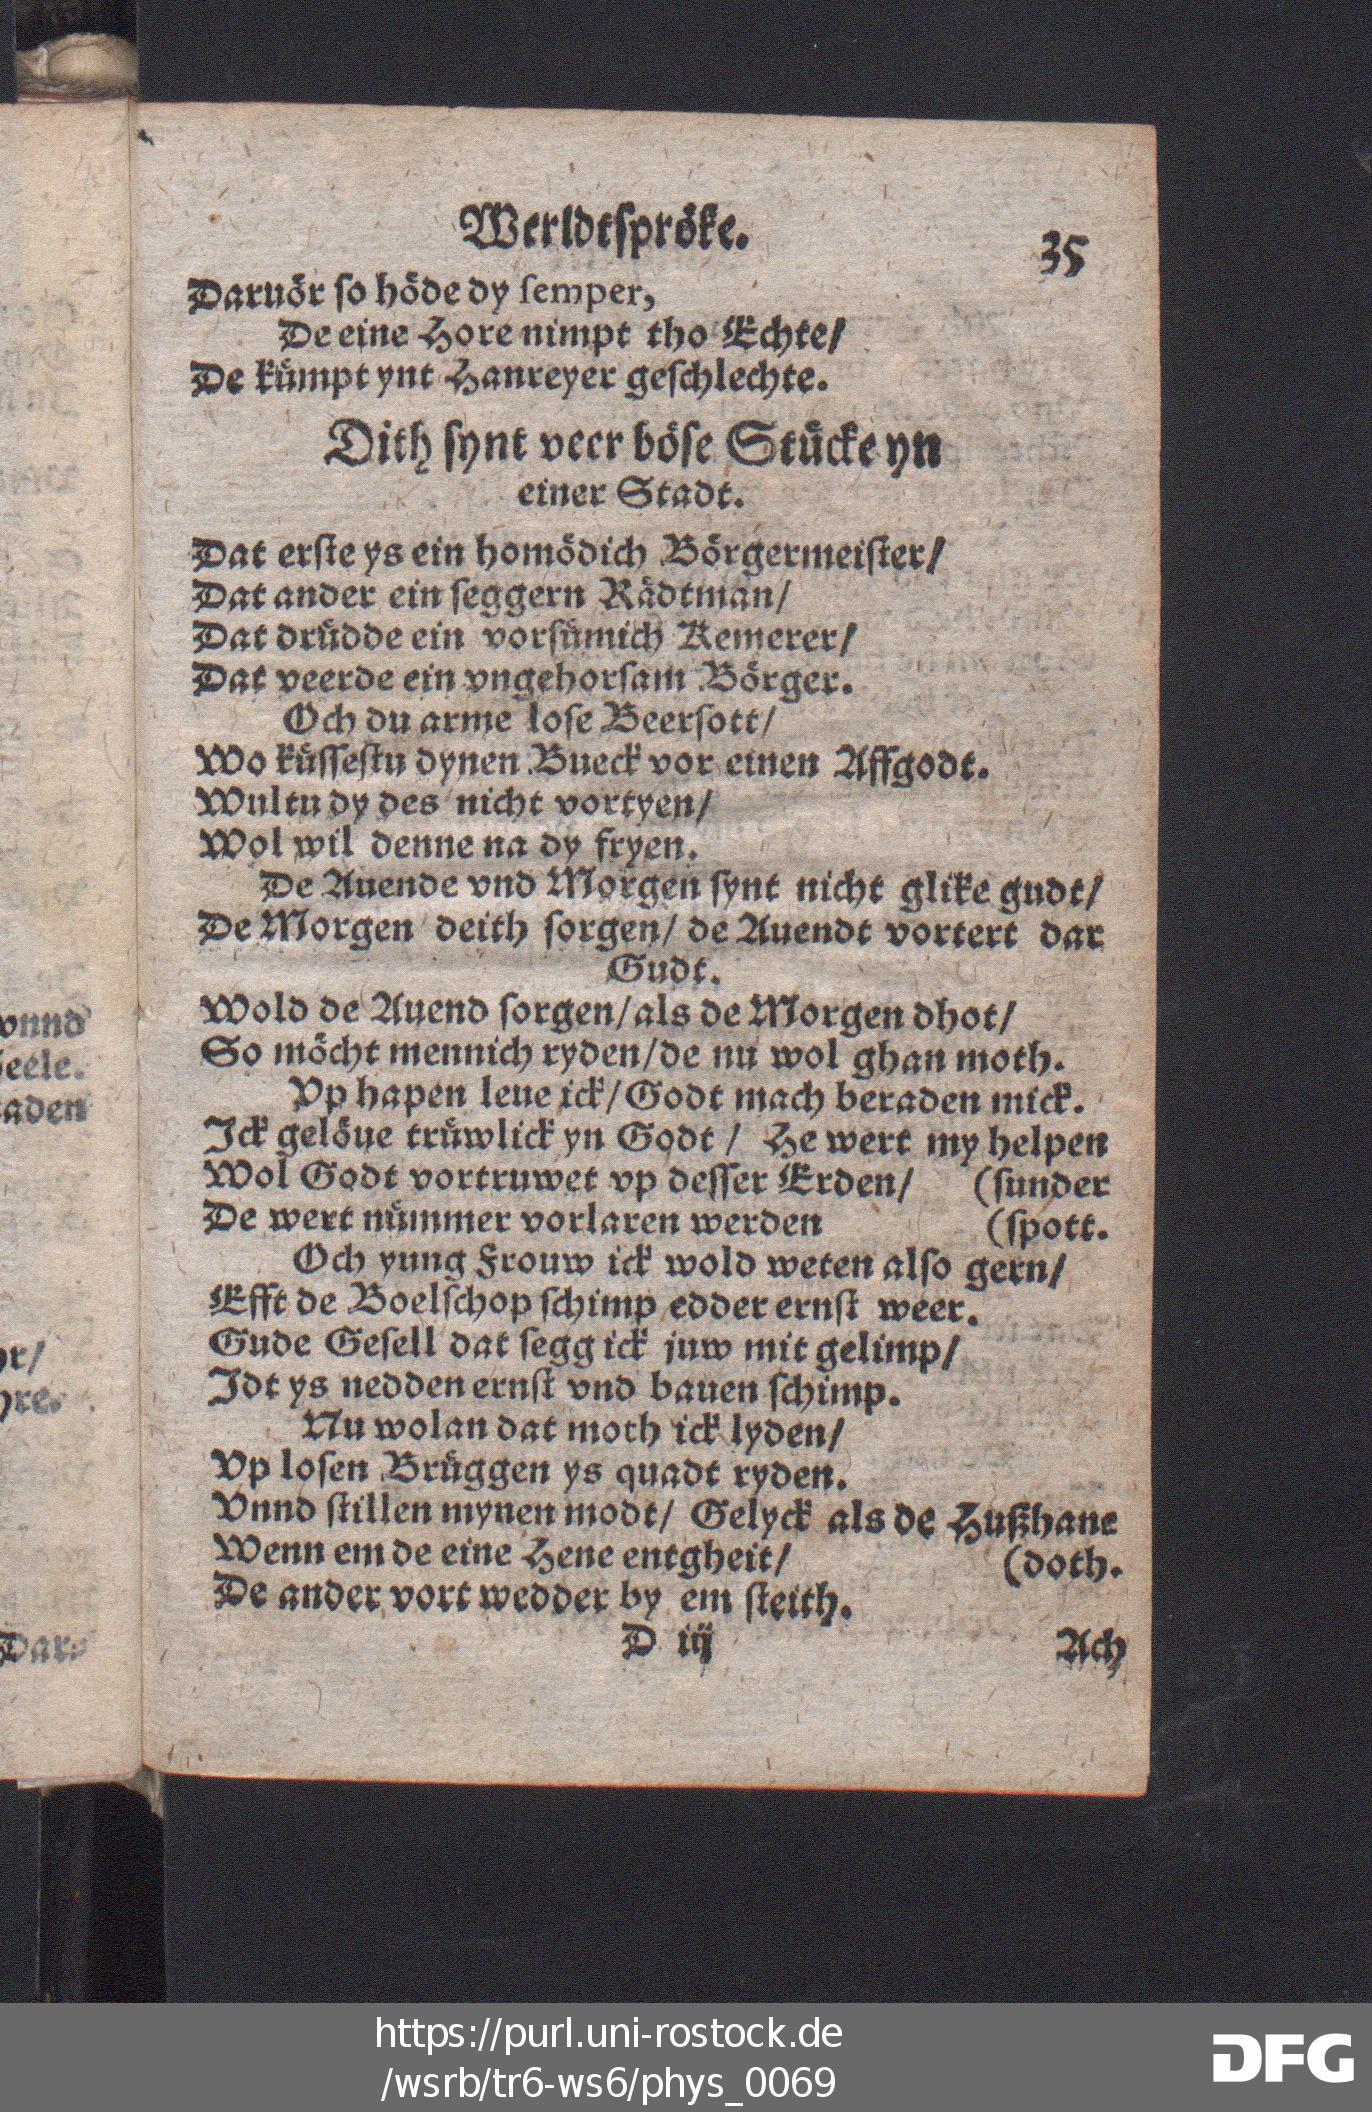 Werldtspröke.
35
Daruör so höde dy semper,
De eine Hore nimpt tho Echte/
De kümpt ynt Hanreyer geschlechte.
Dith synt veer böse Stücke yn
einer Stadt.
Dat erste ys ein homödich Börgermeister/
Dat ander ein seggern Rädtman/
Dat drüdde ein vorsümich Kemerer/
Dat veerde ein vngehorsam Börger.
Och du arme lose Beersott/
Wo küssestu dynen Bueck vor einen Affgodt.
Wultu dy des nicht vortyen/
Wol wil denne na dy fryen.
De Auende vnd Morgen synt nicht glike gudt/
De Morgen deith sorgen/ de Auendt vortert dar
Gudt.
Wold de Auend sorgen/ als de Morgen dhot/
So möcht mennich ryden/ de nu wol ghan moth.
Vp hapen leue ick/ Godt mach beraden mick.
Ick gelöue trüwlick yn Godt / He wert my helpen
Wol Godt vortruwet vp desser Erden/ (sunder
De wert nümmer vorlaren werden (spott.
Och yung Frouw ick wold weten also gern/
Efft de Boelschop schimp edder ernst weer.
Gude Gesell dat segg ick juw mit gelimp/
Idt ys nedden ernst vnd bauen schimp.
Nu wolan dat moth ick lyden/
Vp losen Brüggen ys quadt ryden.
Vnnd stillen mynen modt/ Gelyck als de Hußhane
Wenn em de eine Hene entgheit/ (doth.
De ander vort wedder by em steith.
D iij
Ach
vnnd
seele.
raden
hre.
Dar-
https://purl.uni-rostock.de
/wsrb/tr6-ws6/phys_0069
DFG